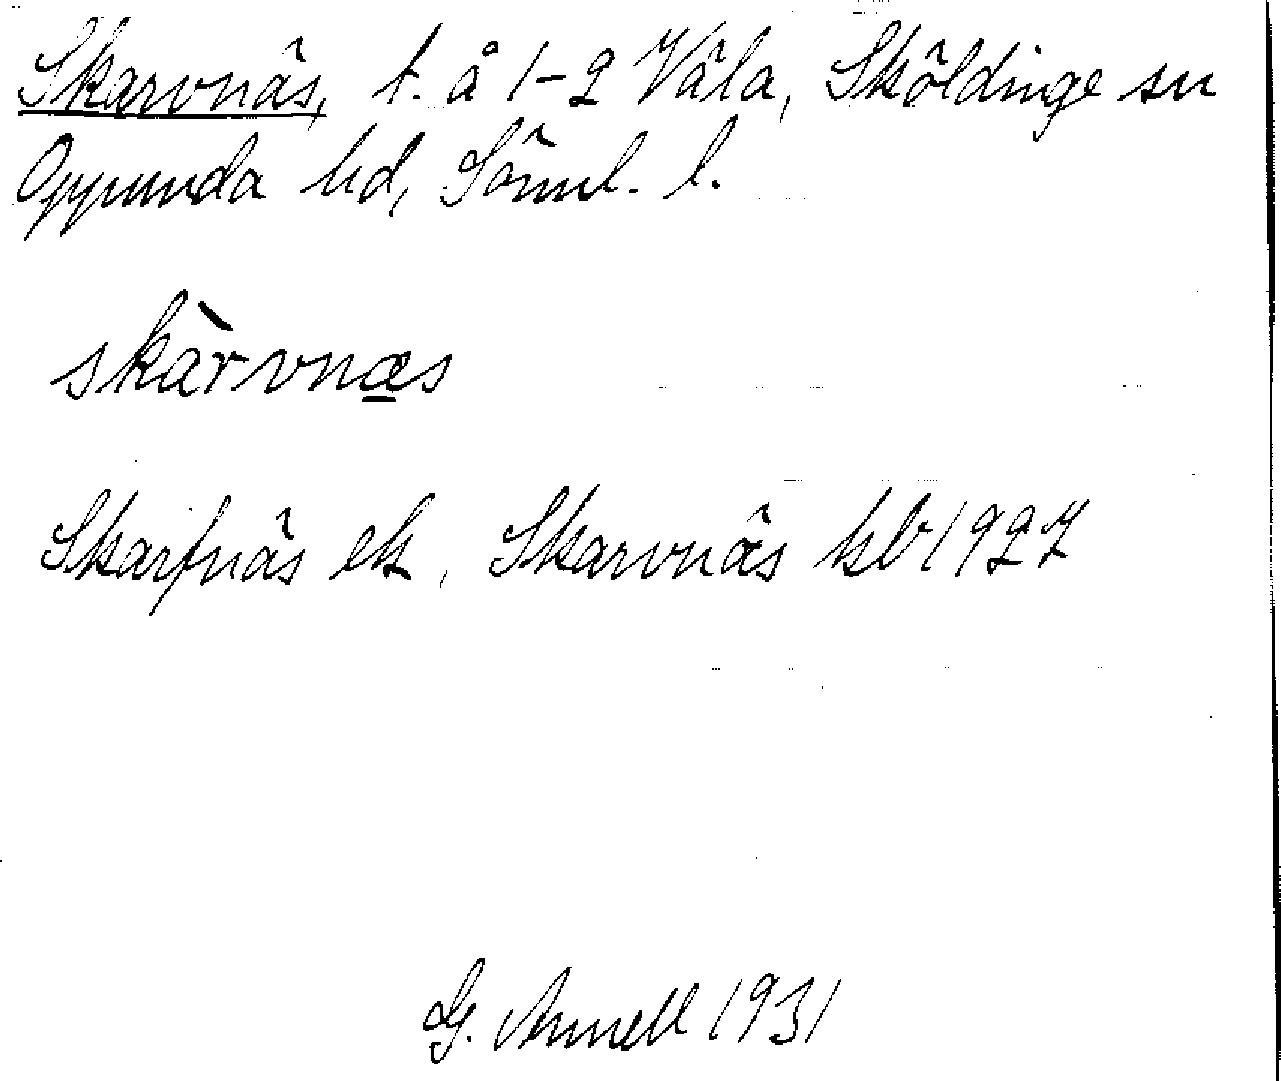 Skarvnäs, t. å 1-2 Våla, Sköldinge sn
Oppunda hd, Söml. l.
skàrvnæs
Skarfnäs ek, Skarvnäs kb 1927
G. Annell 1931